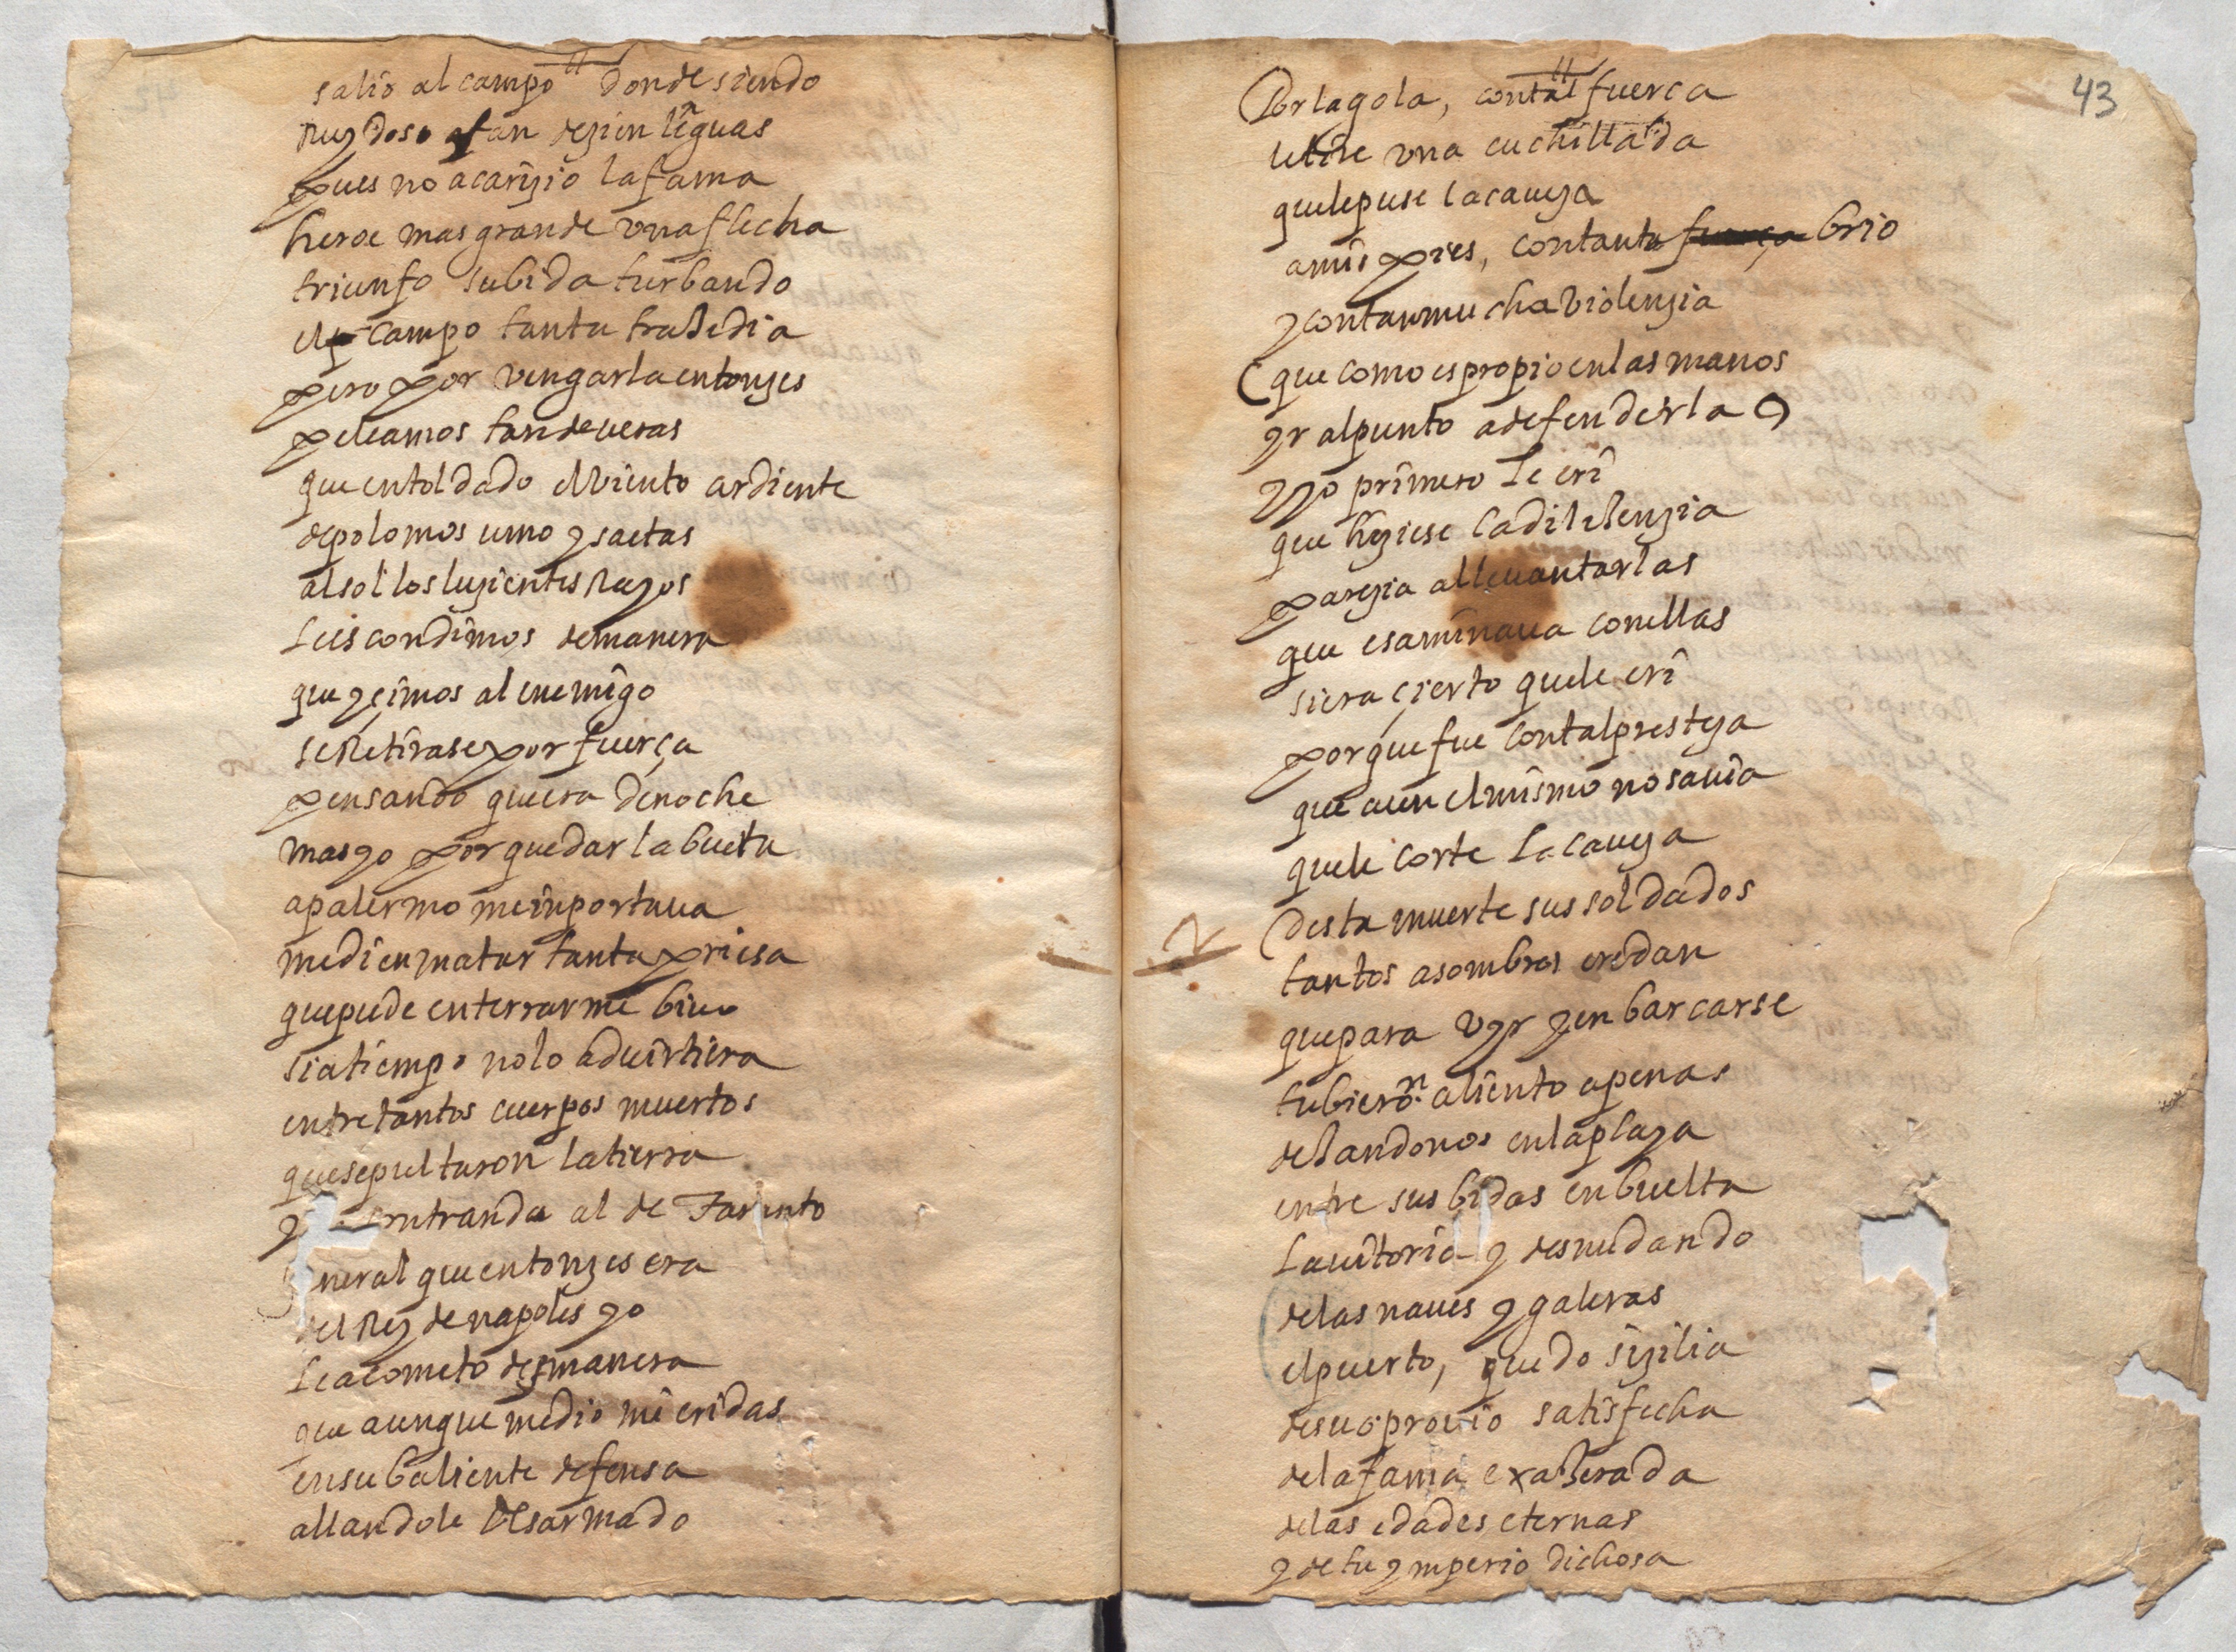 salio al campo donde siendo
Ruydoso afan de zien lenguas
pues no acarizio la fama
heroe mas grande una flecha
triunfo su bida turbando
el campo tanta trajedia
pero por vengarla entonzes
peleamos tan de ueras
que entoldado el viento ardiente
de polomos umo y saetas
al sol los luzientes Rayos
le iscondimos de manera
que yçimos al enemigo
se Retirase por fuerça
pensando que era de noche
mas yo por quedar la buelta
a palermo me inportaua
me di en matar tanta priesa
que pude enterrarme biuo
si a tiempo no lo aduirtiera
entre tantos cuerpos muertos
que sepultaron la tierra
y encontrando al de Taranto
general que entonzes era
del Rey de napoles yo
le acometo de manera
que aunque me dio mi eridas
en su baliente defensa
allandole desarmado
43
Por la gola, con tal fuerca
le tire una cuchillada
que le puse la caueza
a mis pies, con tanto brio
y con tan mucha violenzia
( que como es propio en las manos
yr al punto a defenderla )
y yo primero le eri
que hiziese la dilijenzia
parezia al leuantarlas
que esaminaua con ellas
si era çierto que le eri
porque fue con tal presteza
que aun el mismo no sauia
que le corte la caueza
Desta muerte sus soldados
tantos asombros eredan
que para uyr y enbarcarse
tubieron aliento apenas
dejandonos en la plaza
entre sus bidas enbuelta
la uitoria y desnudando
de las naues y galeras
el puerto, quedo sizilia
de su oprouio satisfecha
de la fama exajerada
de las edades eternas
y de tu ymperio dichosa